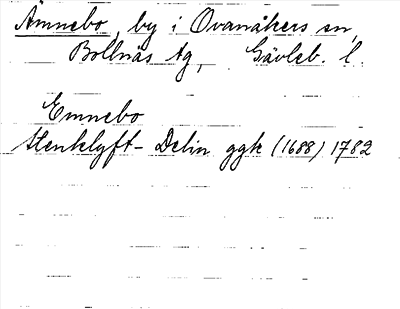 Ämnebo, by i Ovanåkers sn,
Bollnäs tg, Gävleb. l.
Emnebo
Stenklyft- Delin ggk (1688) 1782